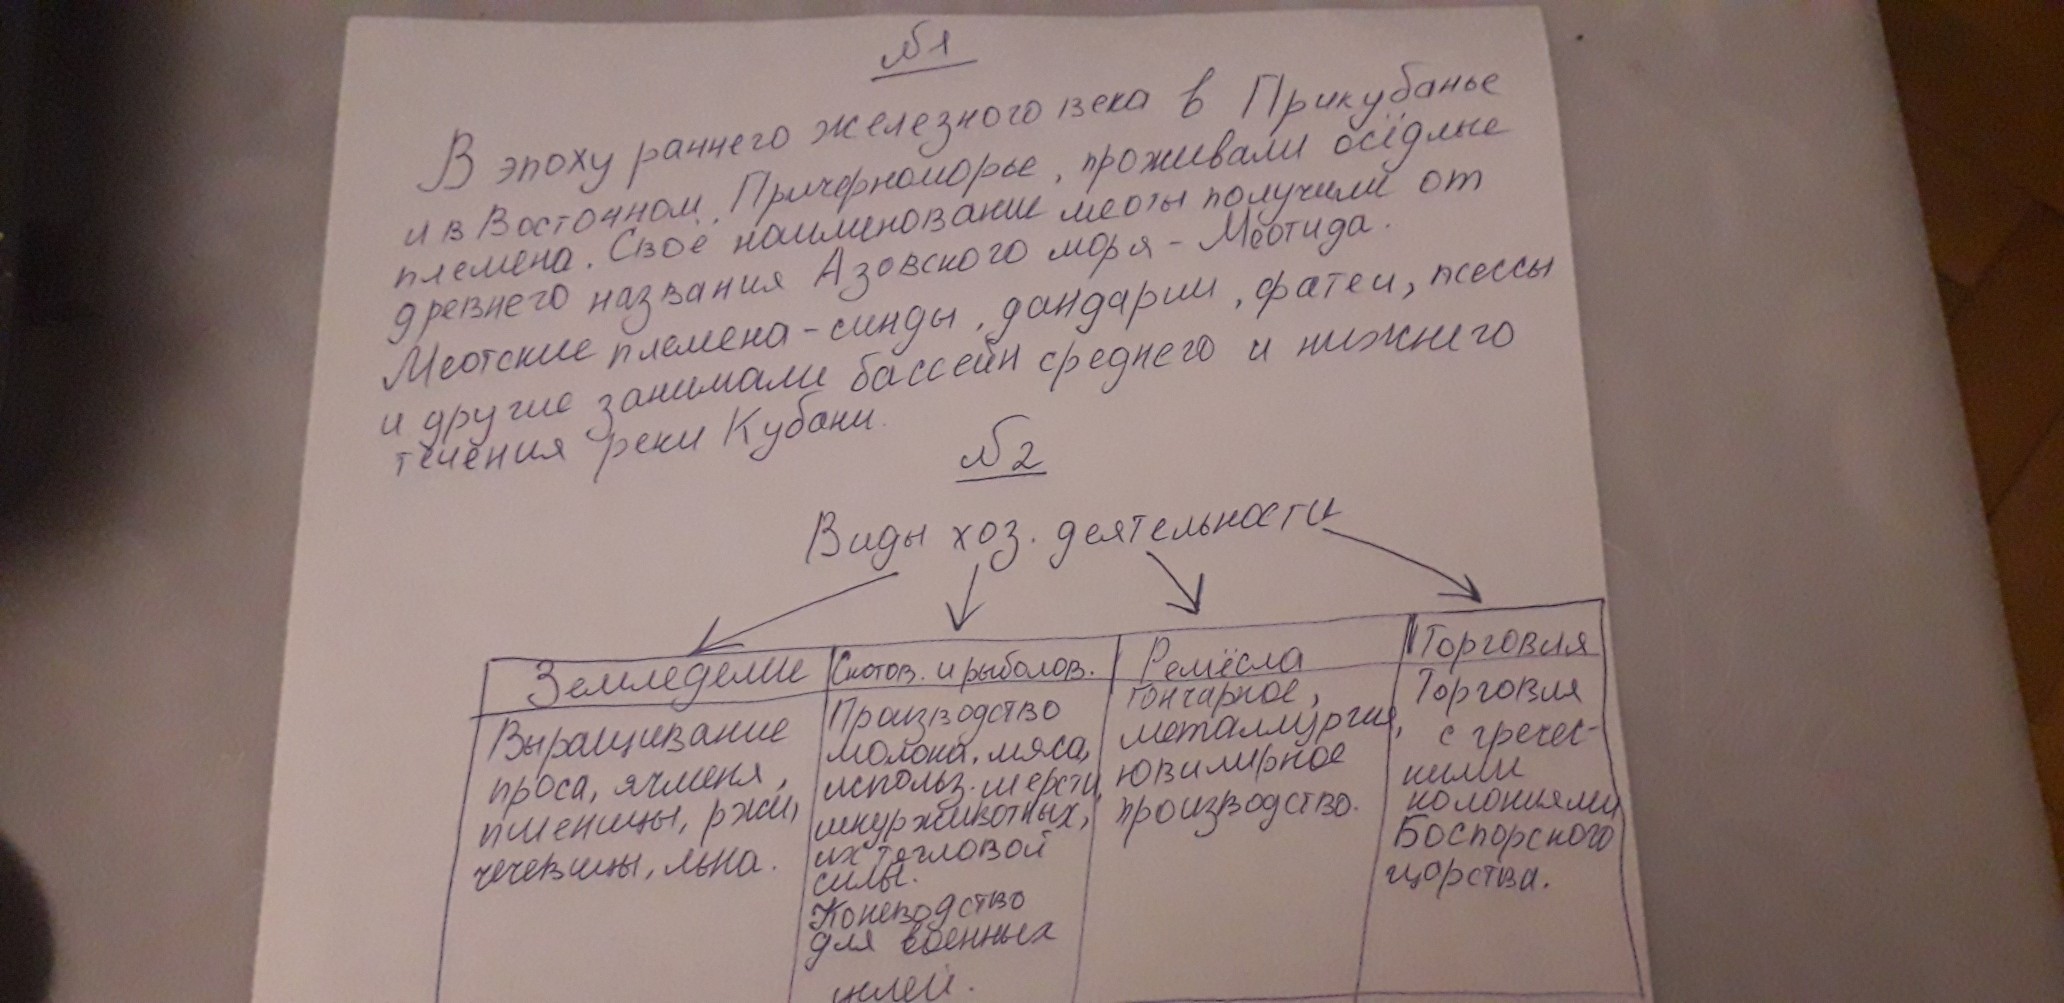 №1
В эпоху раннего железного века в Прикубанье
и в Восточном Причерноморье, проживали осёдлые
племена. Своё наименование меоты получили от
древнего названия Азовского моря - Меотида.
Меотские племена - синды, дандарии, фатеи, псессы
и другие занимали бассейн среднего и нижнего
течения реки Кубани.
№2
Виды хоз. деятельности
Земледелие
Выращивание
проса, ячменя,
пшеницы, ржи,
чечевицы, льна.
Скотов. и рыболов.
Производство
молока, мяса,
использ. шерсти,
шкур животных,
их тягловой
силы.
Коневодство
для военных
целей.
Ремёсла
гончарное,
металлургия,
ювилирное
производство.
Торговля
Торговля
с гречес-
кими
колониями
Боспорского
царства.